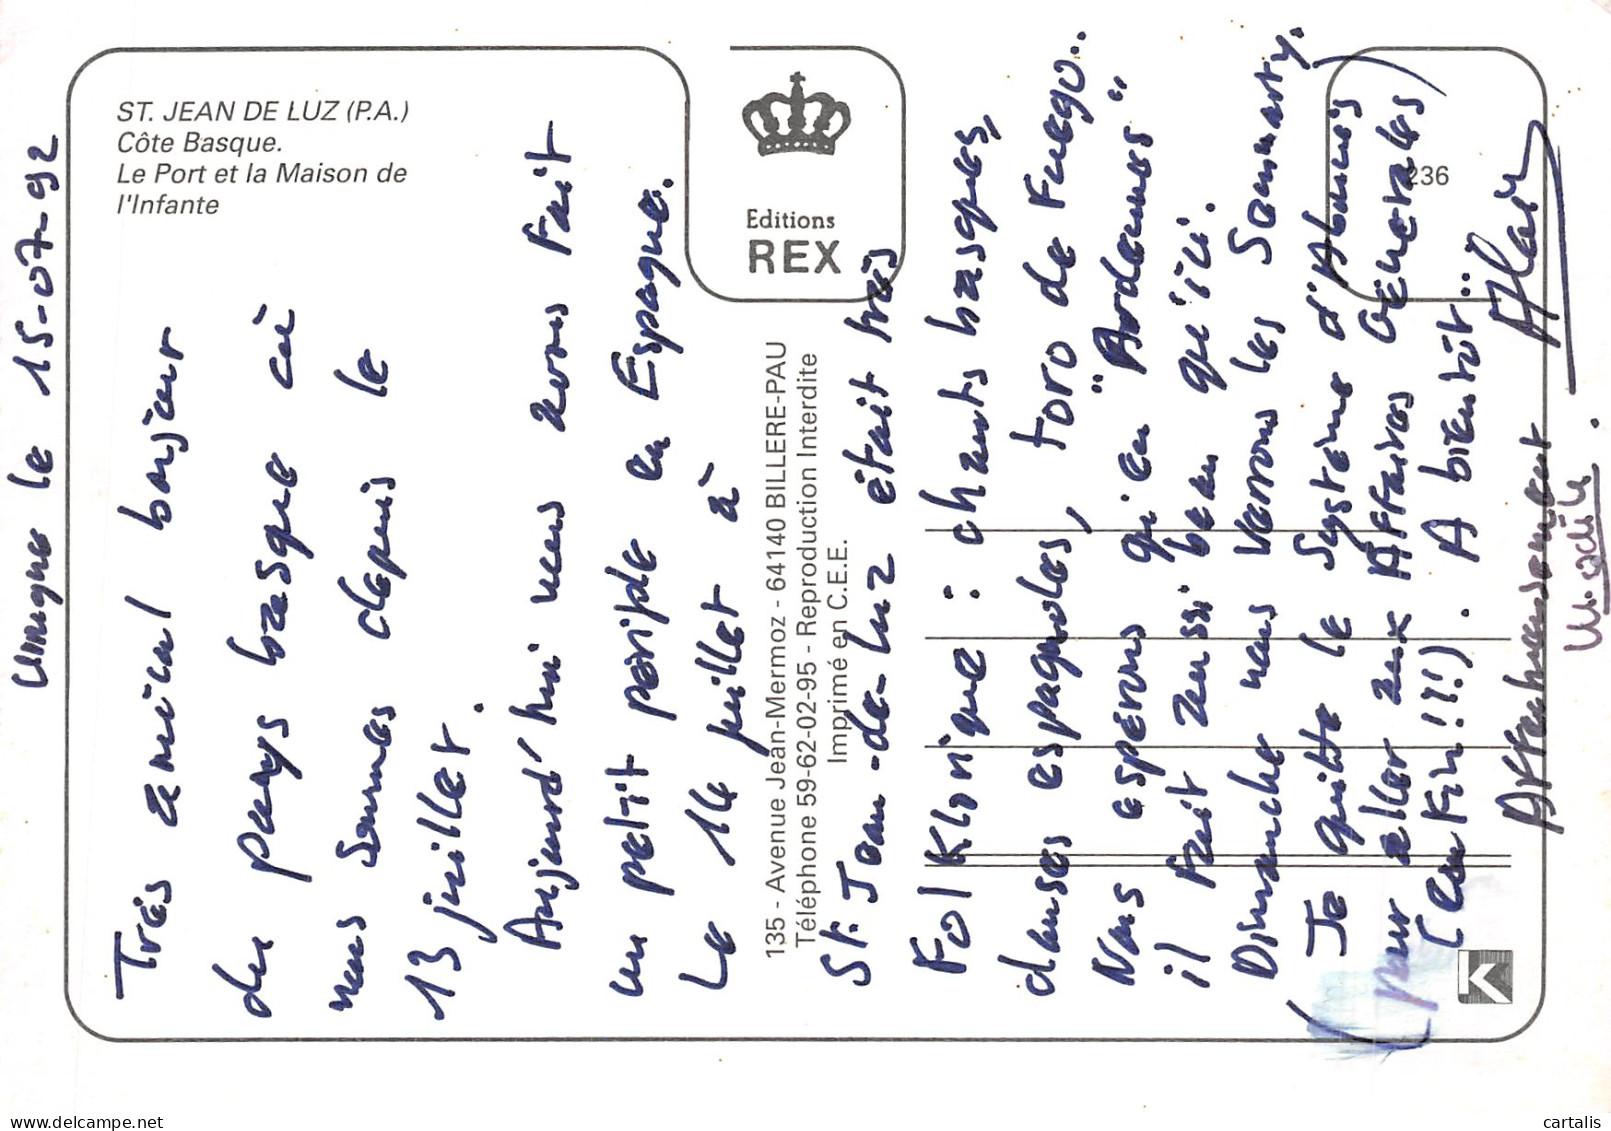 ST. JEAN DE LUZ (P.A.)
Côte Basque.
Le Port et la Maison de
l'Infante
Editions
REX
236
135 - Avenue Jean-Mermoz - 64140 BILLERE-PAU
Téléphone 59-62-02-95 - Reproduction Interdite
Imprimé en C.E.E.
K
le 15-07-92
Très amical bonjour
du pays basque où
nous sommes depuis le
13 juillet.
Aujourd'hui nous avons fait
un petit périple en Espagne.
Le 14 juillet à
St. Jean-de-Luz était très
Folklorique : chants basques,
danses espagnoles, toro de Fuego..
Nous espérons qu'en "Ardennes"
il fait aussi beau qu'ici.
Dimanche nous verrons les Sammarty.
Je quitte le système d'Abonnés
(pour aller aux Affaires Générales)
(enfin!!!). A bientôt..
Affectueusement Alain
cartalis